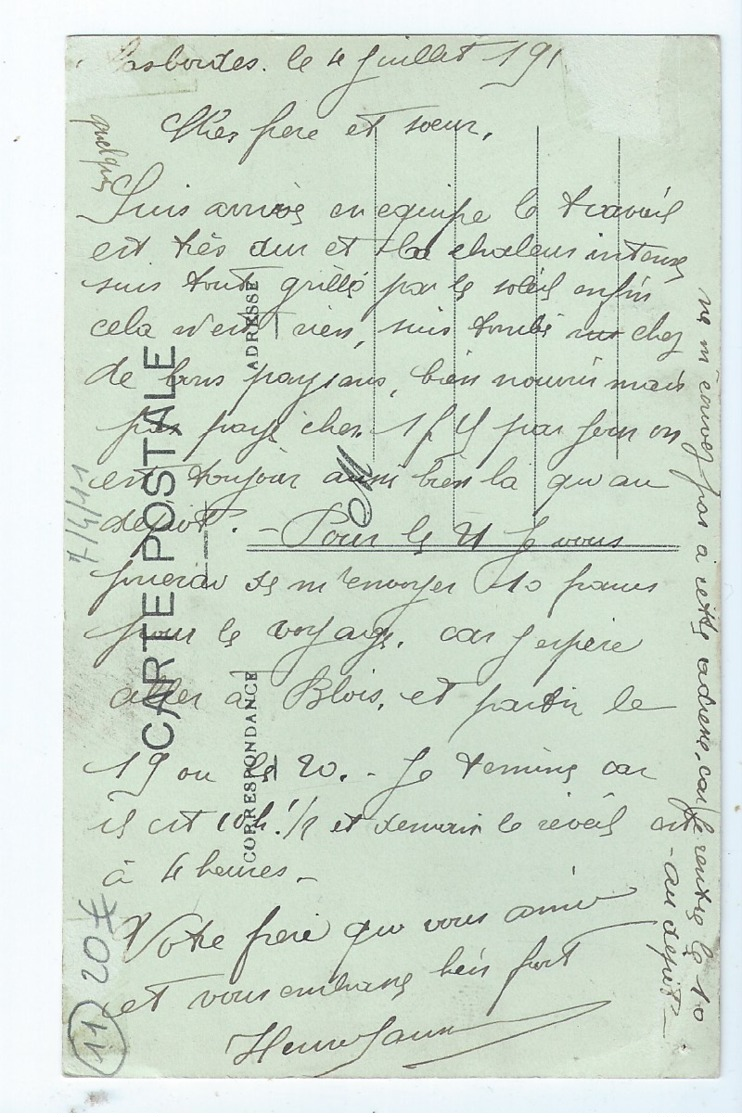 Lasbordes. le 4 Juillet 191
Cher frere et soeur,
Suis arrivé en equipe le travail
est très dur et la chaleur intense
suis tout grillé par le soleil enfin
cela n'est rien, suis tombé sur chez
de bons paysans, bien nourri mais
pas payé cher. 1f par jour on
est toujour aussi bien là qu'au
depot. - Pour le 21 Je vous
prierai de m'envoyer 10 francs
pour le voyage. car J'espère
aller à Blois. et partir le
19 ou le 20. - Je termine car
il est 10h 1/2 et demain le réveil est
à 4 heures -
Votre frère qui vous aime
et vous embrasse bien fort
Henri
ne m'envoyez pas à cette adresse, car Je rentre le 10
- au dépot -
quelque
CARTE POSTALE
ADRESSE
CORRESPONDANCE
7/4/11
20 €
11